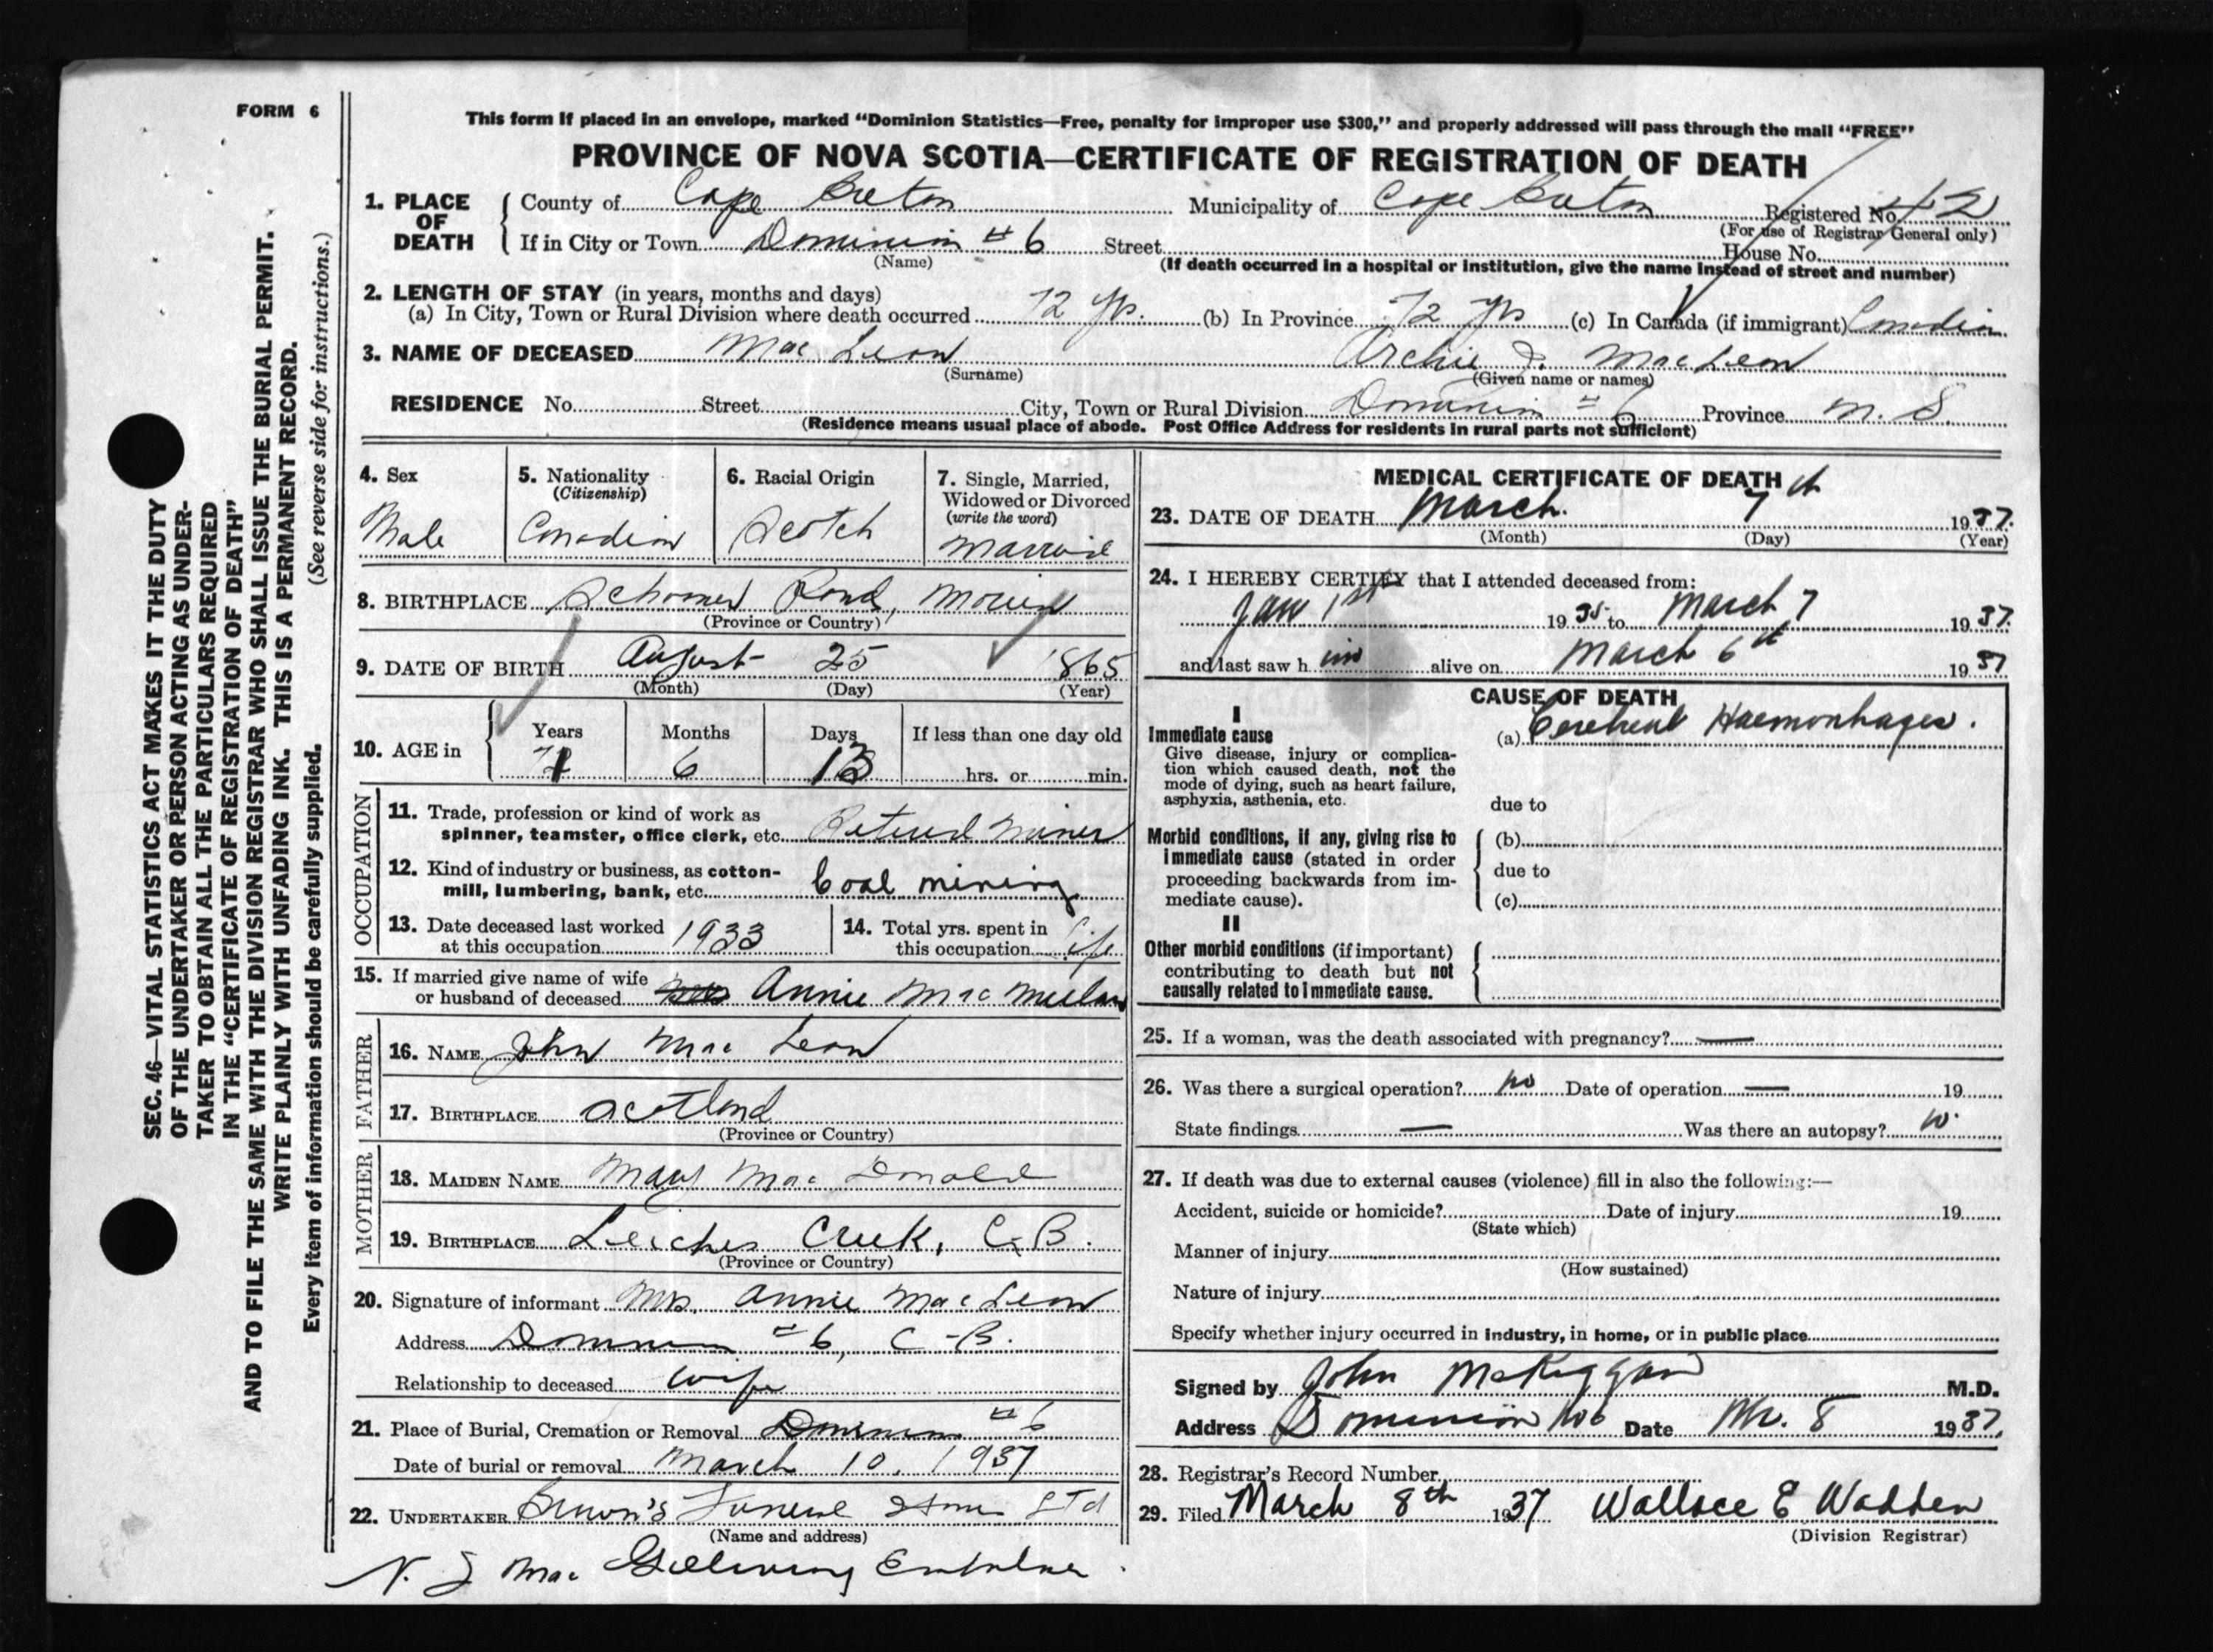 FORM 6
This form if placed in an envelope, marked "Dominion Statistics—Free, penalty for improper use $300," and properly addressed will pass through the mail "FREE"
PROVINCE OF NOVA SCOTIA—CERTIFICATE OF REGISTRATION OF DEATH
1. PLACE OF DEATH
County of Cape Breton Municipality of Cape Breton Registered No. 42
(For use of Registrar General only)
If in City or Town Dominion #6 Street House No.
(Name)
(If death occurred in a hospital or institution, give the name instead of street and number)
2. LENGTH OF STAY (in years, months and days)
(a) In City, Town or Rural Division where death occurred 72 yrs. (b) In Province 72 yrs (c) In Canada (if immigrant) Canadian
3. NAME OF DECEASED Mac Leod Archie J. MacLeod
(Surname) (Given name or names)
RESIDENCE No. Street City, Town or Rural Division Dominion #6 Province N. S.
(Residence means usual place of abode. Post Office Address for residents in rural parts not sufficient)
4. Sex
Male
5. Nationality
(Citizenship)
Canadian
6. Racial Origin
Scotch
7. Single, Married,
Widowed or Divorced
(write the word)
Married
8. BIRTHPLACE Schooner Pond, Morien
(Province or Country)
9. DATE OF BIRTH August 25 1865
(Month) (Day) (Year)
10. AGE in
Years Months Days If less than one day old
71 6 13 hrs. or min.
OCCUPATION
11. Trade, profession or kind of work as
spinner, teamster, office clerk, etc. Retired Miner
12. Kind of industry or business, as cotton-
mill, lumbering, bank, etc. Coal mining
13. Date deceased last worked
at this occupation 1933
14. Total yrs. spent in
this occupation Life
15. If married give name of wife
or husband of deceased Annie Mac
FATHER
16. NAME John Mac Leod
17. BIRTHPLACE Scotland
(Province or Country)
MOTHER
18. MAIDEN NAME Mary Mac Donald
19. BIRTHPLACE Leiches Creek, C.B.
(Province or Country)
20. Signature of informant Mrs. Annie MacLeod
Address Dominion #6, C-B.
Relationship to deceased wife
21. Place of Burial, Cremation or Removal Dominion #6
Date of burial or removal March 10, 1937
22. UNDERTAKER Funeral Home Ltd
(Name and address)
N. J Mac Embalmer
MEDICAL CERTIFICATE OF DEATH
23. DATE OF DEATH March 7th 1937.
(Month) (Day) (Year)
24. I HEREBY CERTIFY that I attended deceased from:
Jan 1st 1935 to March 7 1937.
and last saw him alive on March 6th 1937
CAUSE OF DEATH
I
Immediate cause
Give disease, injury or complica-
tion which caused death, not the
mode of dying, such as heart failure,
asphyxia, asthenia, etc.
(a) Cerebral Haemorrhages.
due to
Morbid conditions, if any, giving rise to
immediate cause (stated in order
proceeding backwards from im-
mediate cause).
(b)
due to
(c)
II
Other morbid conditions (if important)
contributing to death but not
causally related to immediate cause.
25. If a woman, was the death associated with pregnancy? —
26. Was there a surgical operation? no Date of operation — 19
State findings — Was there an autopsy? no.
27. If death was due to external causes (violence) fill in also the following:—
Accident, suicide or homicide? Date of injury 19
(State which)
Manner of injury
(How sustained)
Nature of injury
Specify whether injury occurred in industry, in home, or in public place
Signed by John McKiggan M.D.
Address Dominion No 6 Date Mr. 8 1937.
28. Registrar's Record Number
29. Filed March 8th 1937 Wallace E Wadden
(Division Registrar)
SEC. 46—VITAL STATISTICS ACT MAKES IT THE DUTY
OF THE UNDERTAKER OR PERSON ACTING AS UNDER-
TAKER TO OBTAIN ALL THE PARTICULARS REQUIRED
IN THE "CERTIFICATE OF REGISTRATION OF DEATH"
AND TO FILE THE SAME WITH THE DIVISION REGISTRAR WHO SHALL ISSUE THE BURIAL PERMIT.
WRITE PLAINLY WITH UNFADING INK. THIS IS A PERMANENT RECORD.
Every item of information should be carefully supplied. (See reverse side for instructions.)